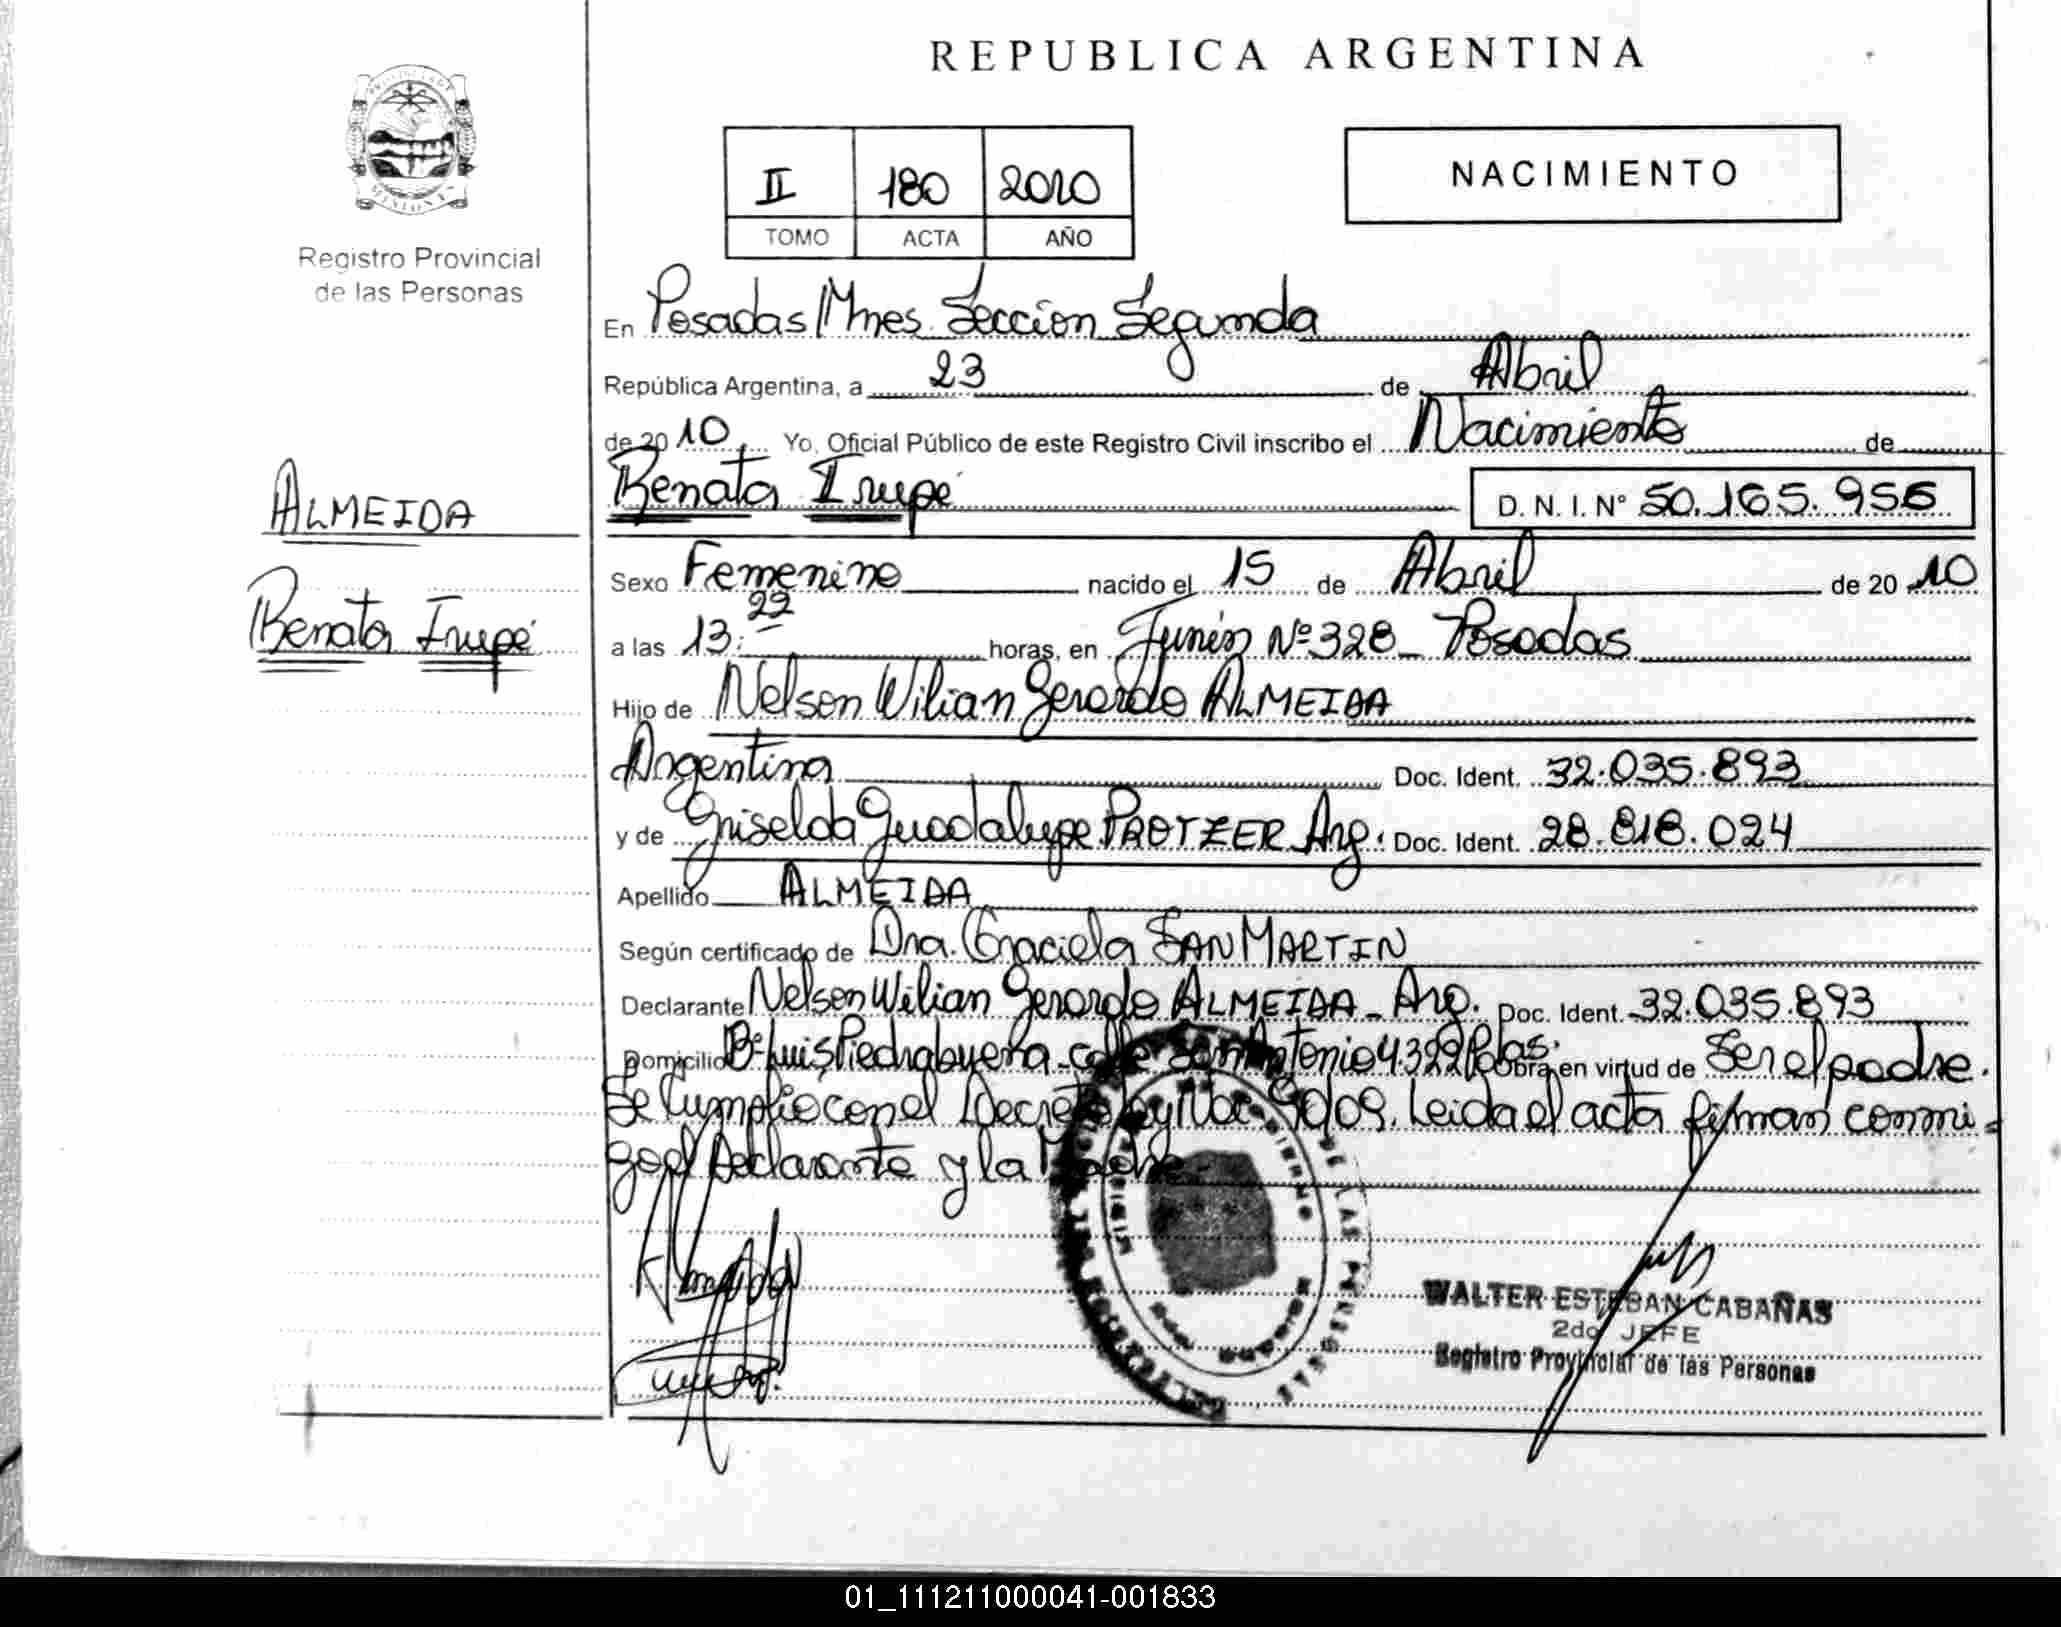 REPUBLICA ARGENTINA
NACIMIENTO
II 180 2010
TOMO ACTA AÑO
Registro Provincial
de las Personas
En Posadas Mnes. Sección Segunda
República Argentina, a 23 de Abril
de 20 10 Yo, Oficial Público de este Registro Civil inscribo el Nacimiento de
ALMEIDA
Renata Irupé
D. N. I. N° 50.165.956
Sexo Femenino nacido el 15 de Abril de 20 10
Renata Irupé
a las 13:22 horas, en Junín Nº 328 - Posadas
Hijo de Nelson Wilian Gerardo ALMEIDA
Argentina Doc. Ident. 32.035.893
y de Griselda Guadalupe PROTZER Arg. Doc. Ident. 28.818.024
Apellido ALMEIDA
Según certificado de Dra. Graciela SAN MARTIN
Declarante Nelson Wilian Gerardo ALMEIDA - Arg. Doc. Ident. 32.035.893
Domicilio Bº Luis Piedrabuena - calle San Antonio 4392 Pdas. Obra en virtud de Ser el padre.
Se Cumplió con el Decreto Ley Nac. 90/09. Leida el acta firman conmi-
go el Declarante y la Madre.
WALTER ESTEBAN CABAÑAS
2do JEFE
Registro Provincial de las Personas
01_111211000041-001833